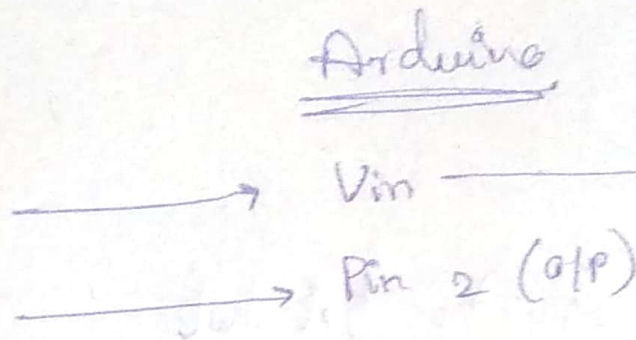 Arduino
Vin
Pin 2 (O/P)